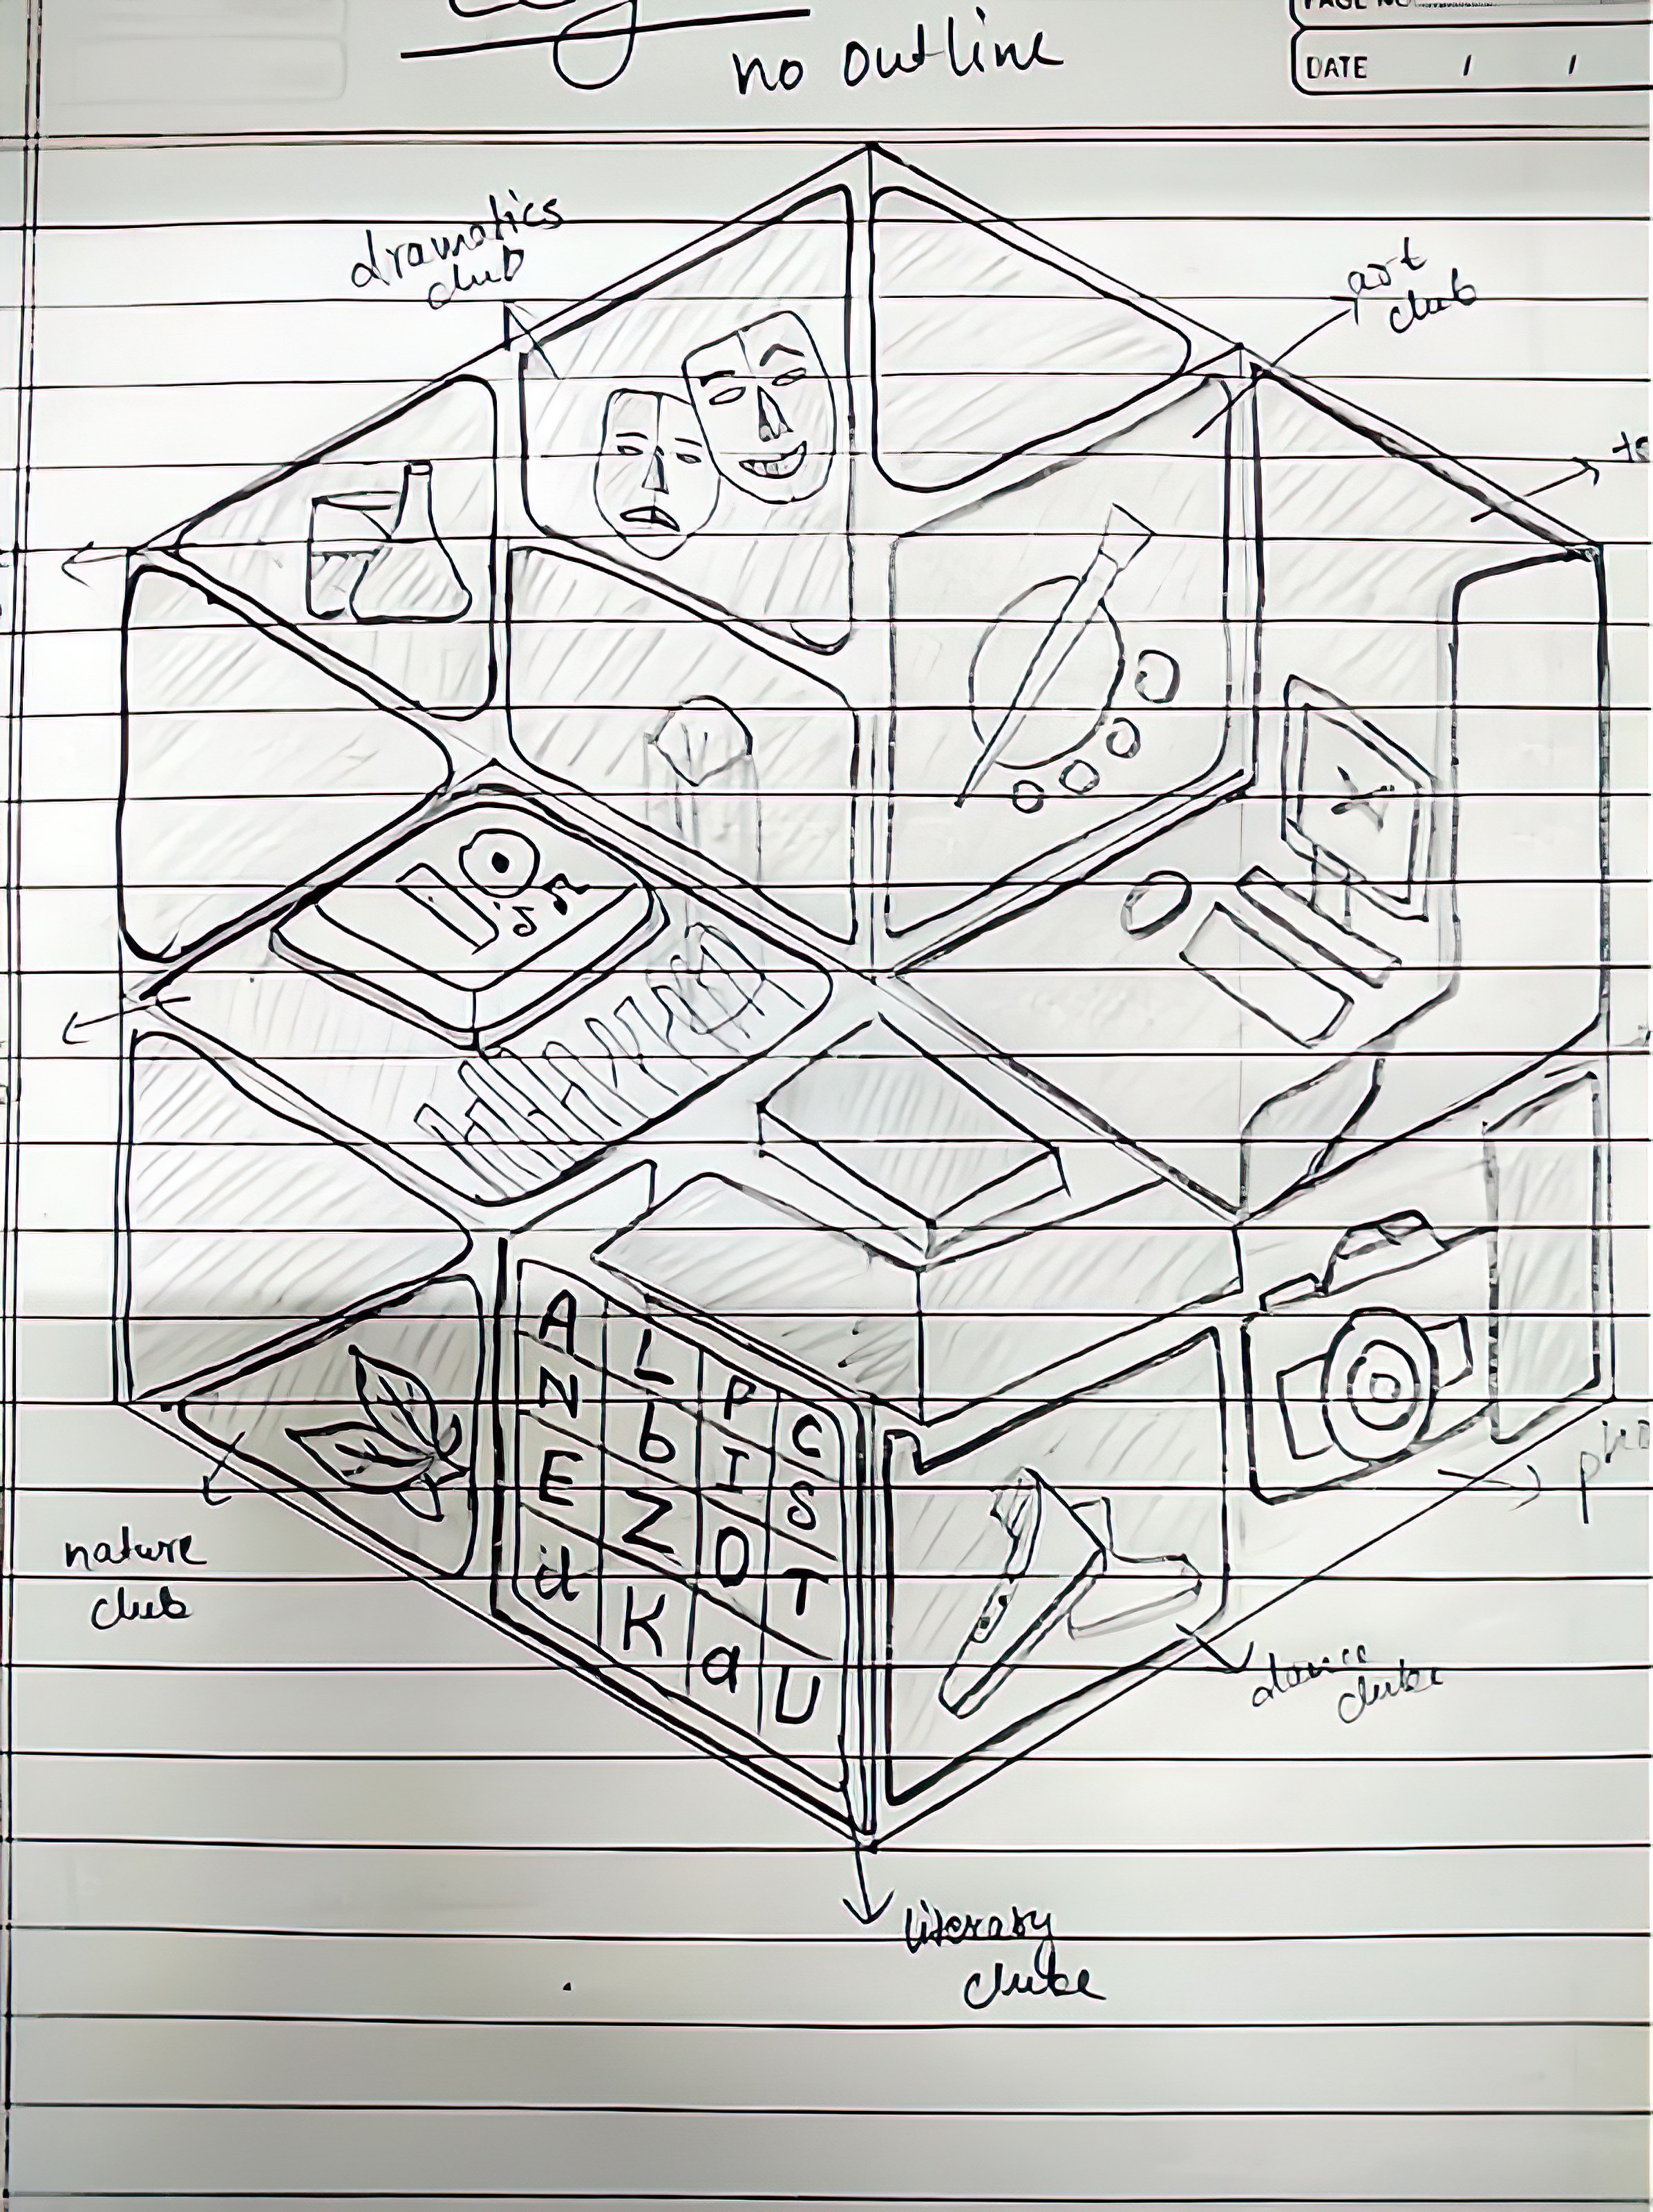 PAGE NO
no outline
DATE / /
dramatics
club
art
club
A L P C
N b I S
E Z O T
d K a U
nature
club
dance
clube
literary
clube